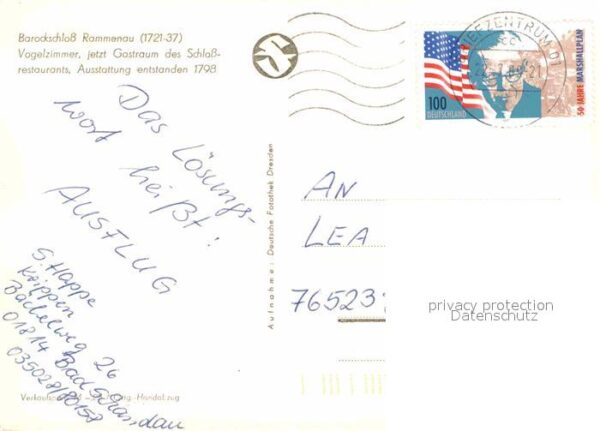 Barockschloß Rammenau (1721-37)
Vogelzimmer, jetzt Gastraum des Schloß-
restaurants, Ausstattung entstanden 1798
Das Lösungs-
wort heißt:
AUSFLUG
S. Happe
Krippen
Bächelweg 26
01814 Bad Schandau
035028/80158
Aufnahme: Deutsche Fotothek Dresden
BRIEFZENTRUM 01
100
DEUTSCHLAND
50 JAHRE MARSHALLPLAN
AN
LEA
76523
privacy protection
Datenschutz